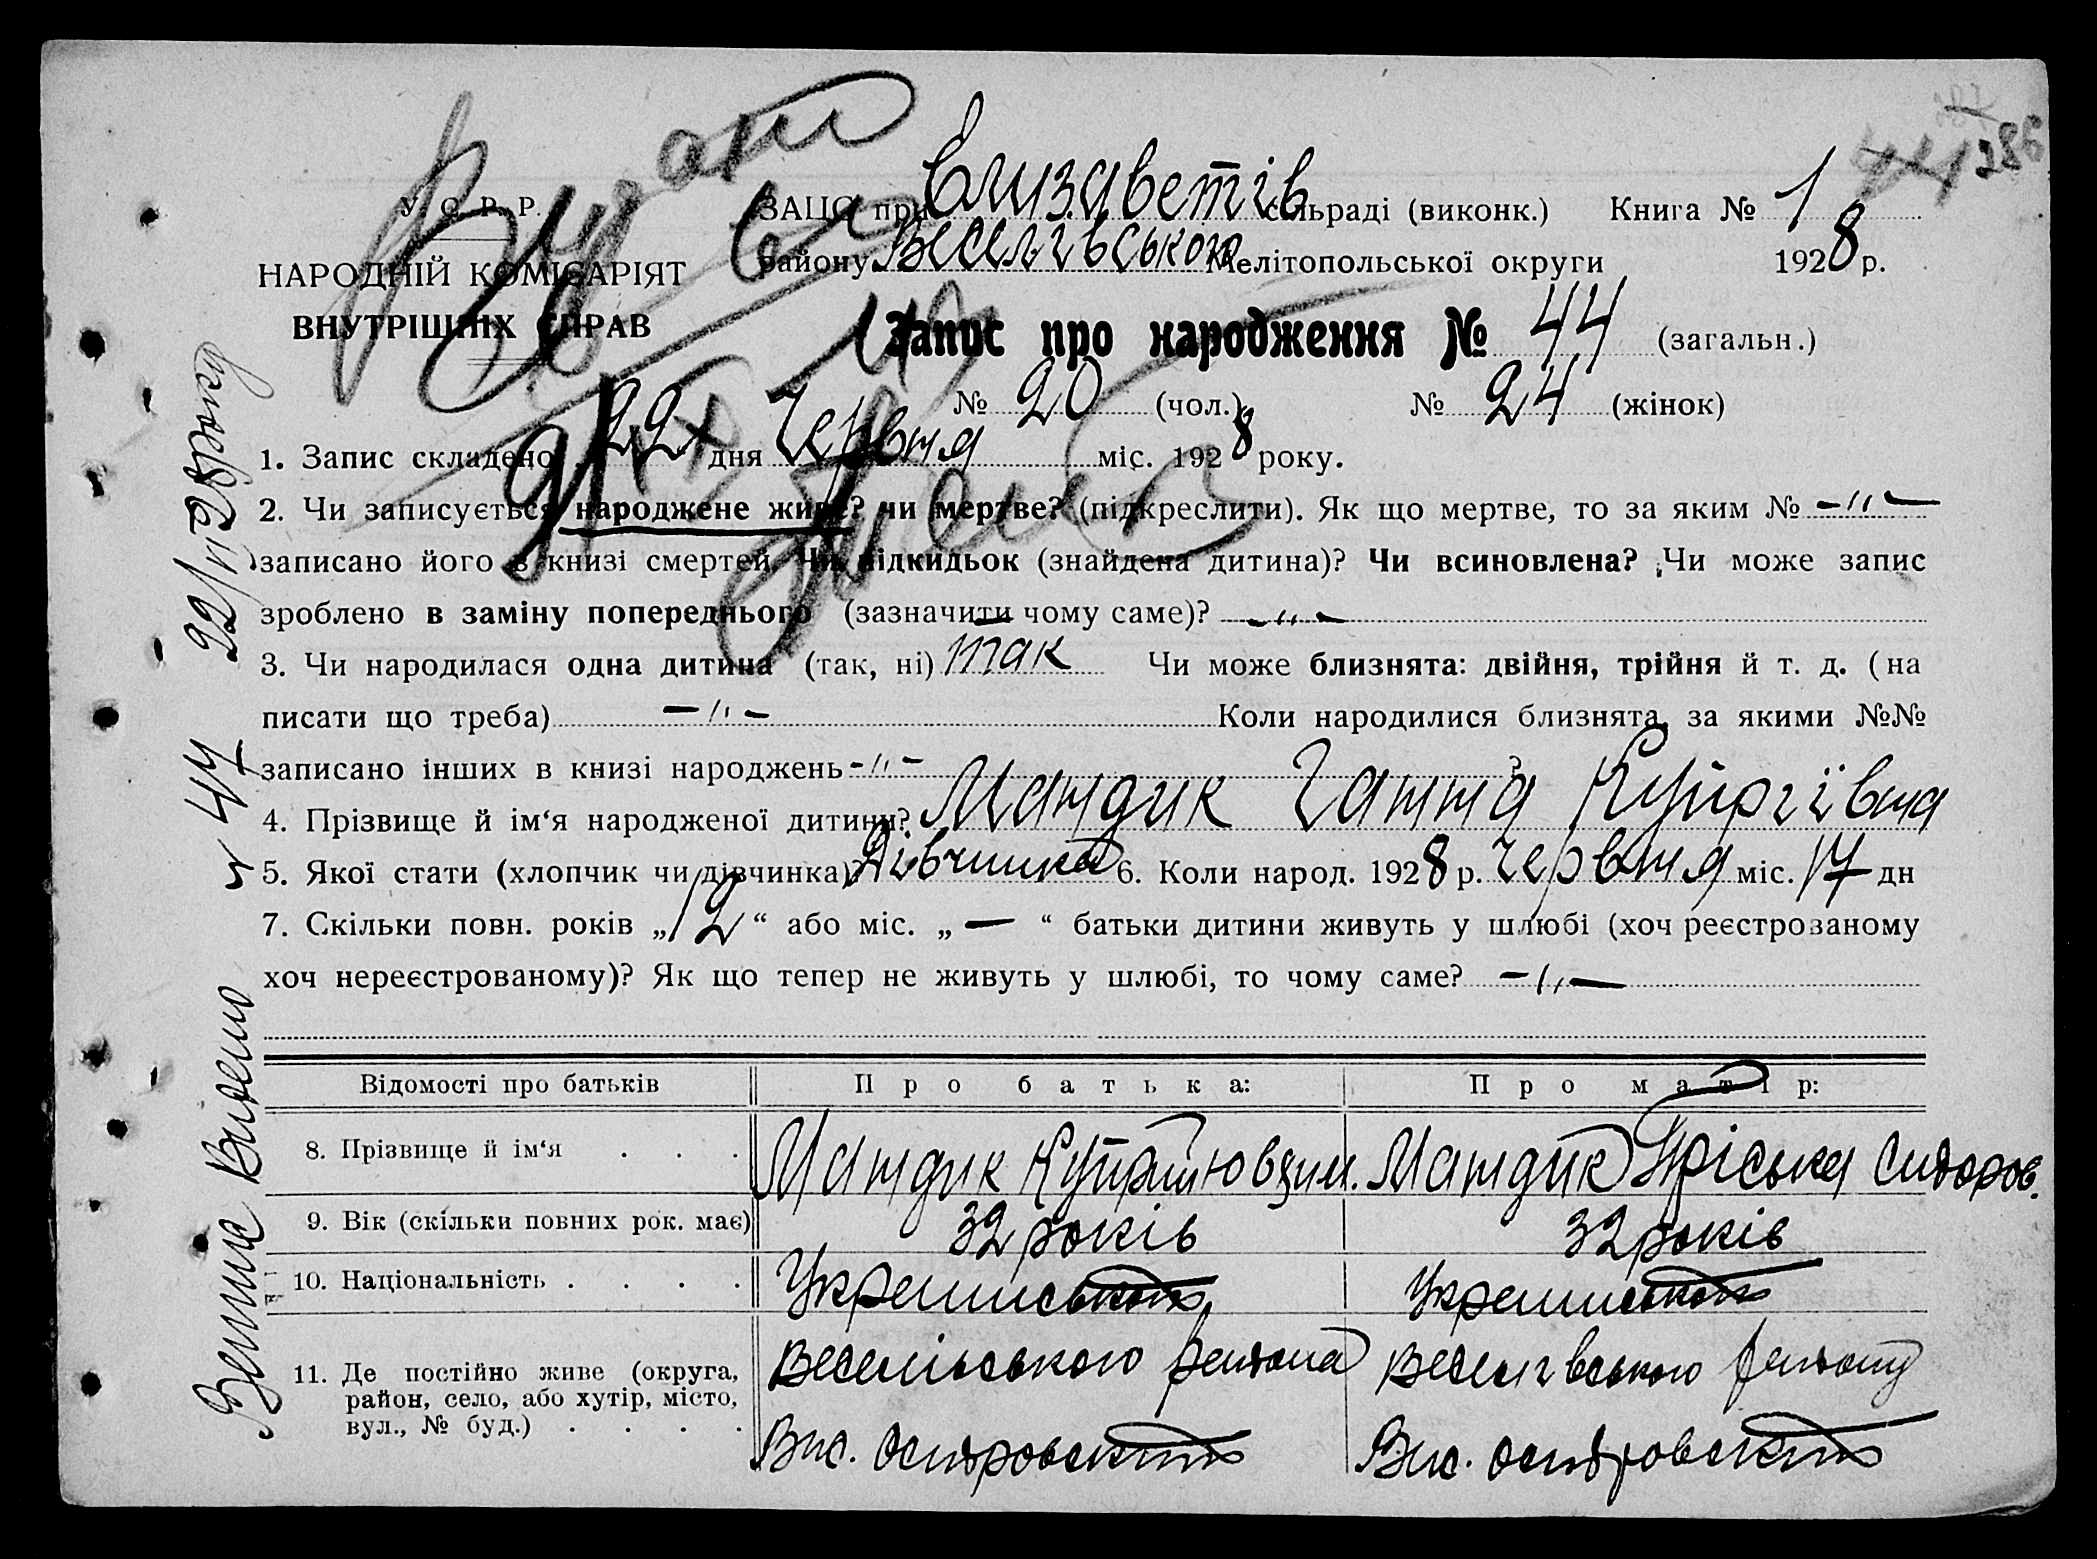 У. С. Р. Р.
НАРОДНІЙ КОМІСАРІЯТ
ВНУТРІШНІХ СПРАВ
ЗАЦС при Єлизаветів сільраді (виконк.) Книга № 1
району Веселівського Мелітопольської округи 1928 р.
286
Запис про народження № 44 (загальн.)
№ 20 (чол.) № 24 (жінок)
1. Запис складено 22 дня Червня міс. 1928 року.
2. Чи записується народжене живе? чи мертве? (підкреслити). Як що мертве, то за яким № -"-
записано його в книзі смертей. Чи підкидьок (знайдена дитина)? Чи всиновлена? Чи може запис
зроблено в заміну попереднього (зазначити чому саме)? -"-
3. Чи народилася одна дитина (так, ні) так Чи може близнята: двійня, трійня й т. д. (на
писати що треба) -"- Коли народилися близнята, за якими №№
записано інших в книзі народжень -"- ?
4. Прізвище й ім'я народженої дитини? Мандик Ганна
5. Якої стати (хлопчик чи дівчинка)? Дівчинка 6. Коли народ. 1928 р. червня міс. 17 дн
7. Скільки повн. років „12“ або міс. „—“ батьки дитини живуть у шлюбі (хоч реєстрованому
хоч нереєстрованому)? Як що тепер не живуть у шлюбі, то чому саме? -"-
Відомості про батьків Про батька: Про матір:
8. Прізвище й ім'я . . . Мандик Мандик Пріська Сидоров.
9. Вік (скільки повних рок. має) 32 років 32 років
10. Національність . . . .
11. Де постійно живе (округа, район, село, або хутір, місто, вул., № буд.) . . . .
Веселівського района Веселівського району
Вис. Островський Вис. Островський
Видено № 44 22/VI 28 року